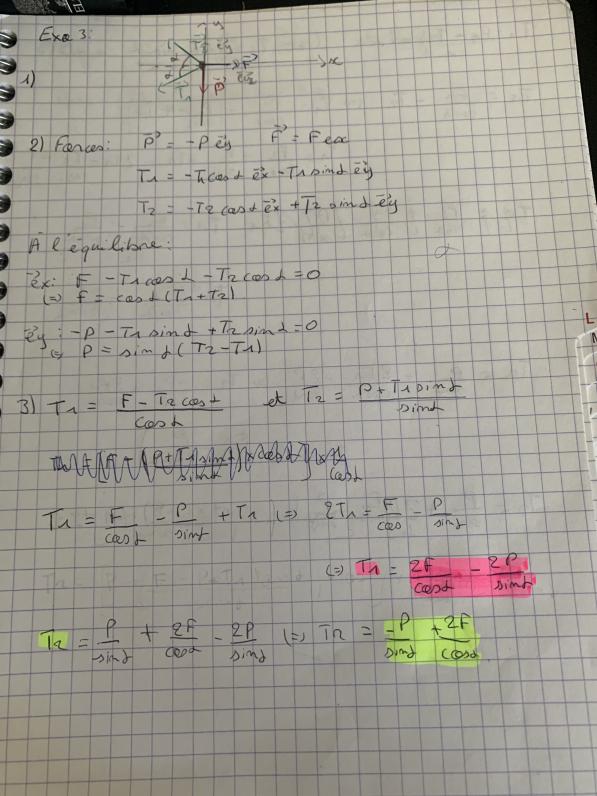 Exo 3:
1)
y
T₂ e⃗y
α
α
F⃗
x
T⃗₁
P⃗
2) Forces: P⃗ = -P e⃗y F⃗ = F ex
T1 = -T1 cos α e⃗x - T1 sin α e⃗y
T2 = -T2 cos α e⃗x + T2 sin α e⃗y
A l'équilibre:
e⃗x: F - T1 cos α - T2 cos α = 0
(=) f = cos α (T1 + T2)
e⃗y: -P - T1 sin α + T2 sin α = 0
(=) P = sin α (T2 - T1)
3) T1 = (F - T2 cos α)/(cos α) et T2 = (P + T1 sin α)/(sin α)
T1 = F/(cos α) - P/(sin α) + T1 (=) 2T1 = F/(cos) - P/(sin α)
(=) T1 = 2F/(cos α) - 2P/(sin α)
T2 = P/(sin α) + 2F/(cos α) - 2P/(sin α) (=) T2 = -P/(sin α) + 2F/(cos α)